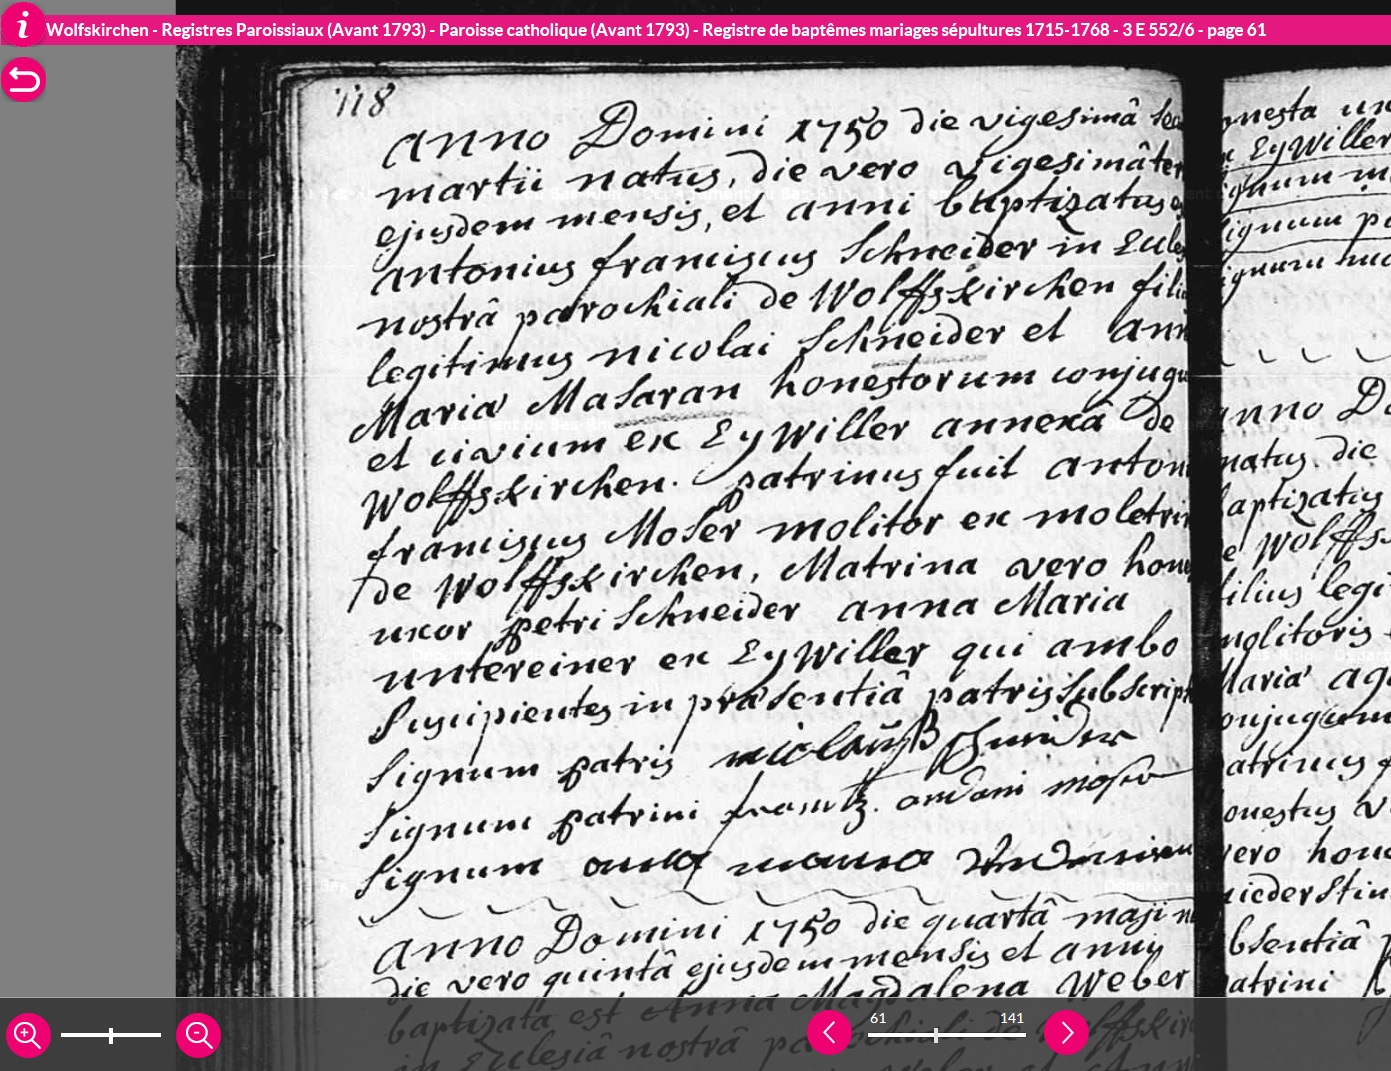 Wolfskirchen - Registres Paroissiaux (Avant 1793) - Paroisse catholique (Avant 1793) - Registre de baptêmes mariages sépultures 1715-1768 - 3 E 552/6 - page 61
118
anno Domini 1750 die vigesimâ
martii natus, die vero vigesimâ ter
ejusdem mensis, et anni baptizatus e
antonius franciscus Schneider in Eccles
nostrâ parochiali de Wolffskirchen fili
legitimus nicolai Schneider et ann
Maria Masaran honestorum conjugu
et civium ex EyWiller annexâ de
Wolffskirchen. patrinus fuit anton
franciscus Moser molitor ex moletrin
de Wolffskirchen, Matrina vero hon
uxor petri Schneider anna Maria
untereiner ex EyWiller qui ambo
Suscipientes in præsentiâ patris subscrip
Signum patris nicolauß schneider
Signum patrini frantz. andoni moser
Signum anna maria
anno Domini 1750 die quartâ maji n
die vero quintâ ejusdem mensis et anni
baptizata est Anna Magdalena Weber
in Ecclesiâ nostra parochiali de Wolffskir
onesta
EyWiller
ignum
ignum
ignum
anno D
natus die
baptizatus
de Wolffs
filius legi
molitoris
Maria
conjugum
patrinus f
onestus
vero hon
absentiâ
patrini
61
141